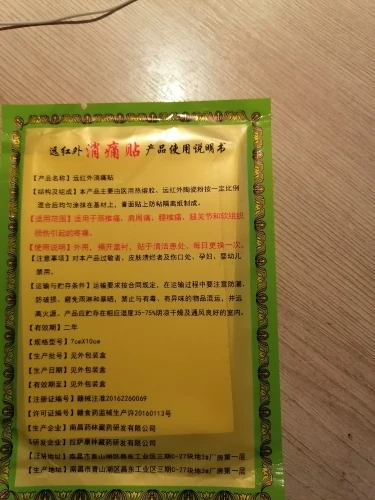 远红外消痛贴产品使用说明书
【产品名称】远红外消痛贴
【结构及组成】本产品主要由医用热熔胶、远红外陶瓷粉按一定比例
混合后均匀涂抹在基材上,膏面贴上防粘隔离纸制成。
【适用范围】适用于颈椎痛、肩周痛、腰椎痛、膝关节和软组织
损伤引起的疼痛。
【使用说明】外用,揭开蓋衬,贴于清洁患处,每日更换一次。
【注意事项】对本产品过敏者、皮肤溃烂者及伤口处、孕妇、婴幼儿
禁用。
【运输与贮存条件】运输要求按合同规定,在运输过程中要注意防潮、
防破损、避免雨淋和暴晒,禁止与有毒、有异味的物品混运,并远
离火源。产品应贮存在相应湿度35-75%阴凉干燥及通风良好的室内。
【有效期】二年
【规格型号】7cmX10cm
【生产批号】见外包装盒
【生产日期】见外包装盒
【有效期至】见外包装盒
【注册证编号】赣械注准20162260069
【许可证编号】赣食药监械生产许20160113号
【生产企业】南昌药林藏药研发有限公司
【研发企业】拉萨康林藏药研发有限公司
【注册地址】南昌市青山湖区昌东工业区三期C-27块地3#厂房第一层
【生产地址】南昌市青山湖区昌东工业区三期C-27块地3#厂房第一层